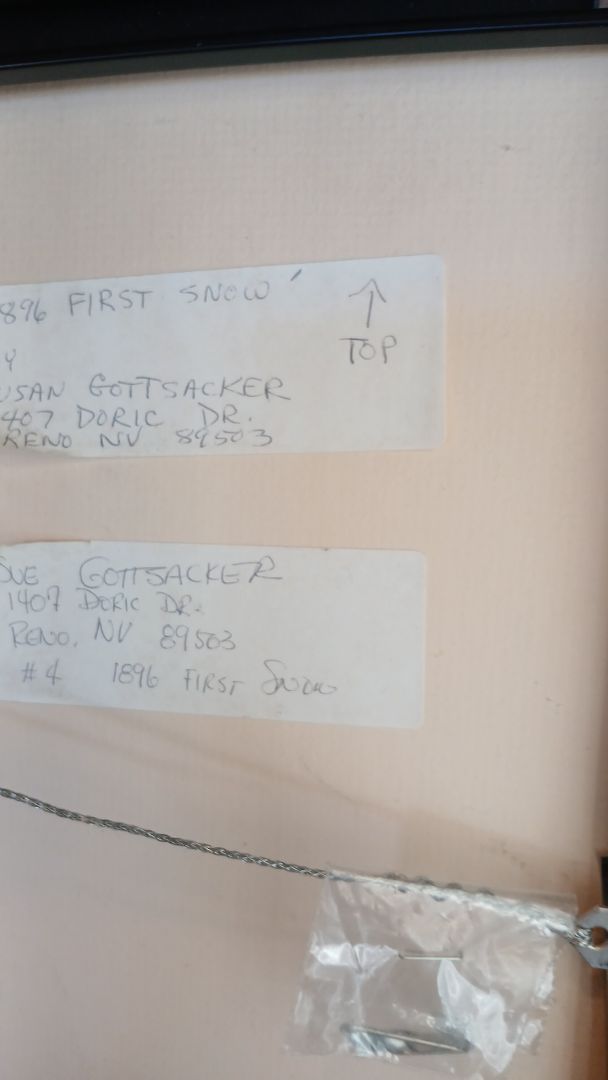 896 FIRST SNOW'
↑
TOP
Y
USAN GOTTSACKER
407 DORIC DR.
RENO NV 89503
SUE GOTTSACKER
1407 DORIC DR.
RENO, NV 89503
#4 1896 FIRST SNOW